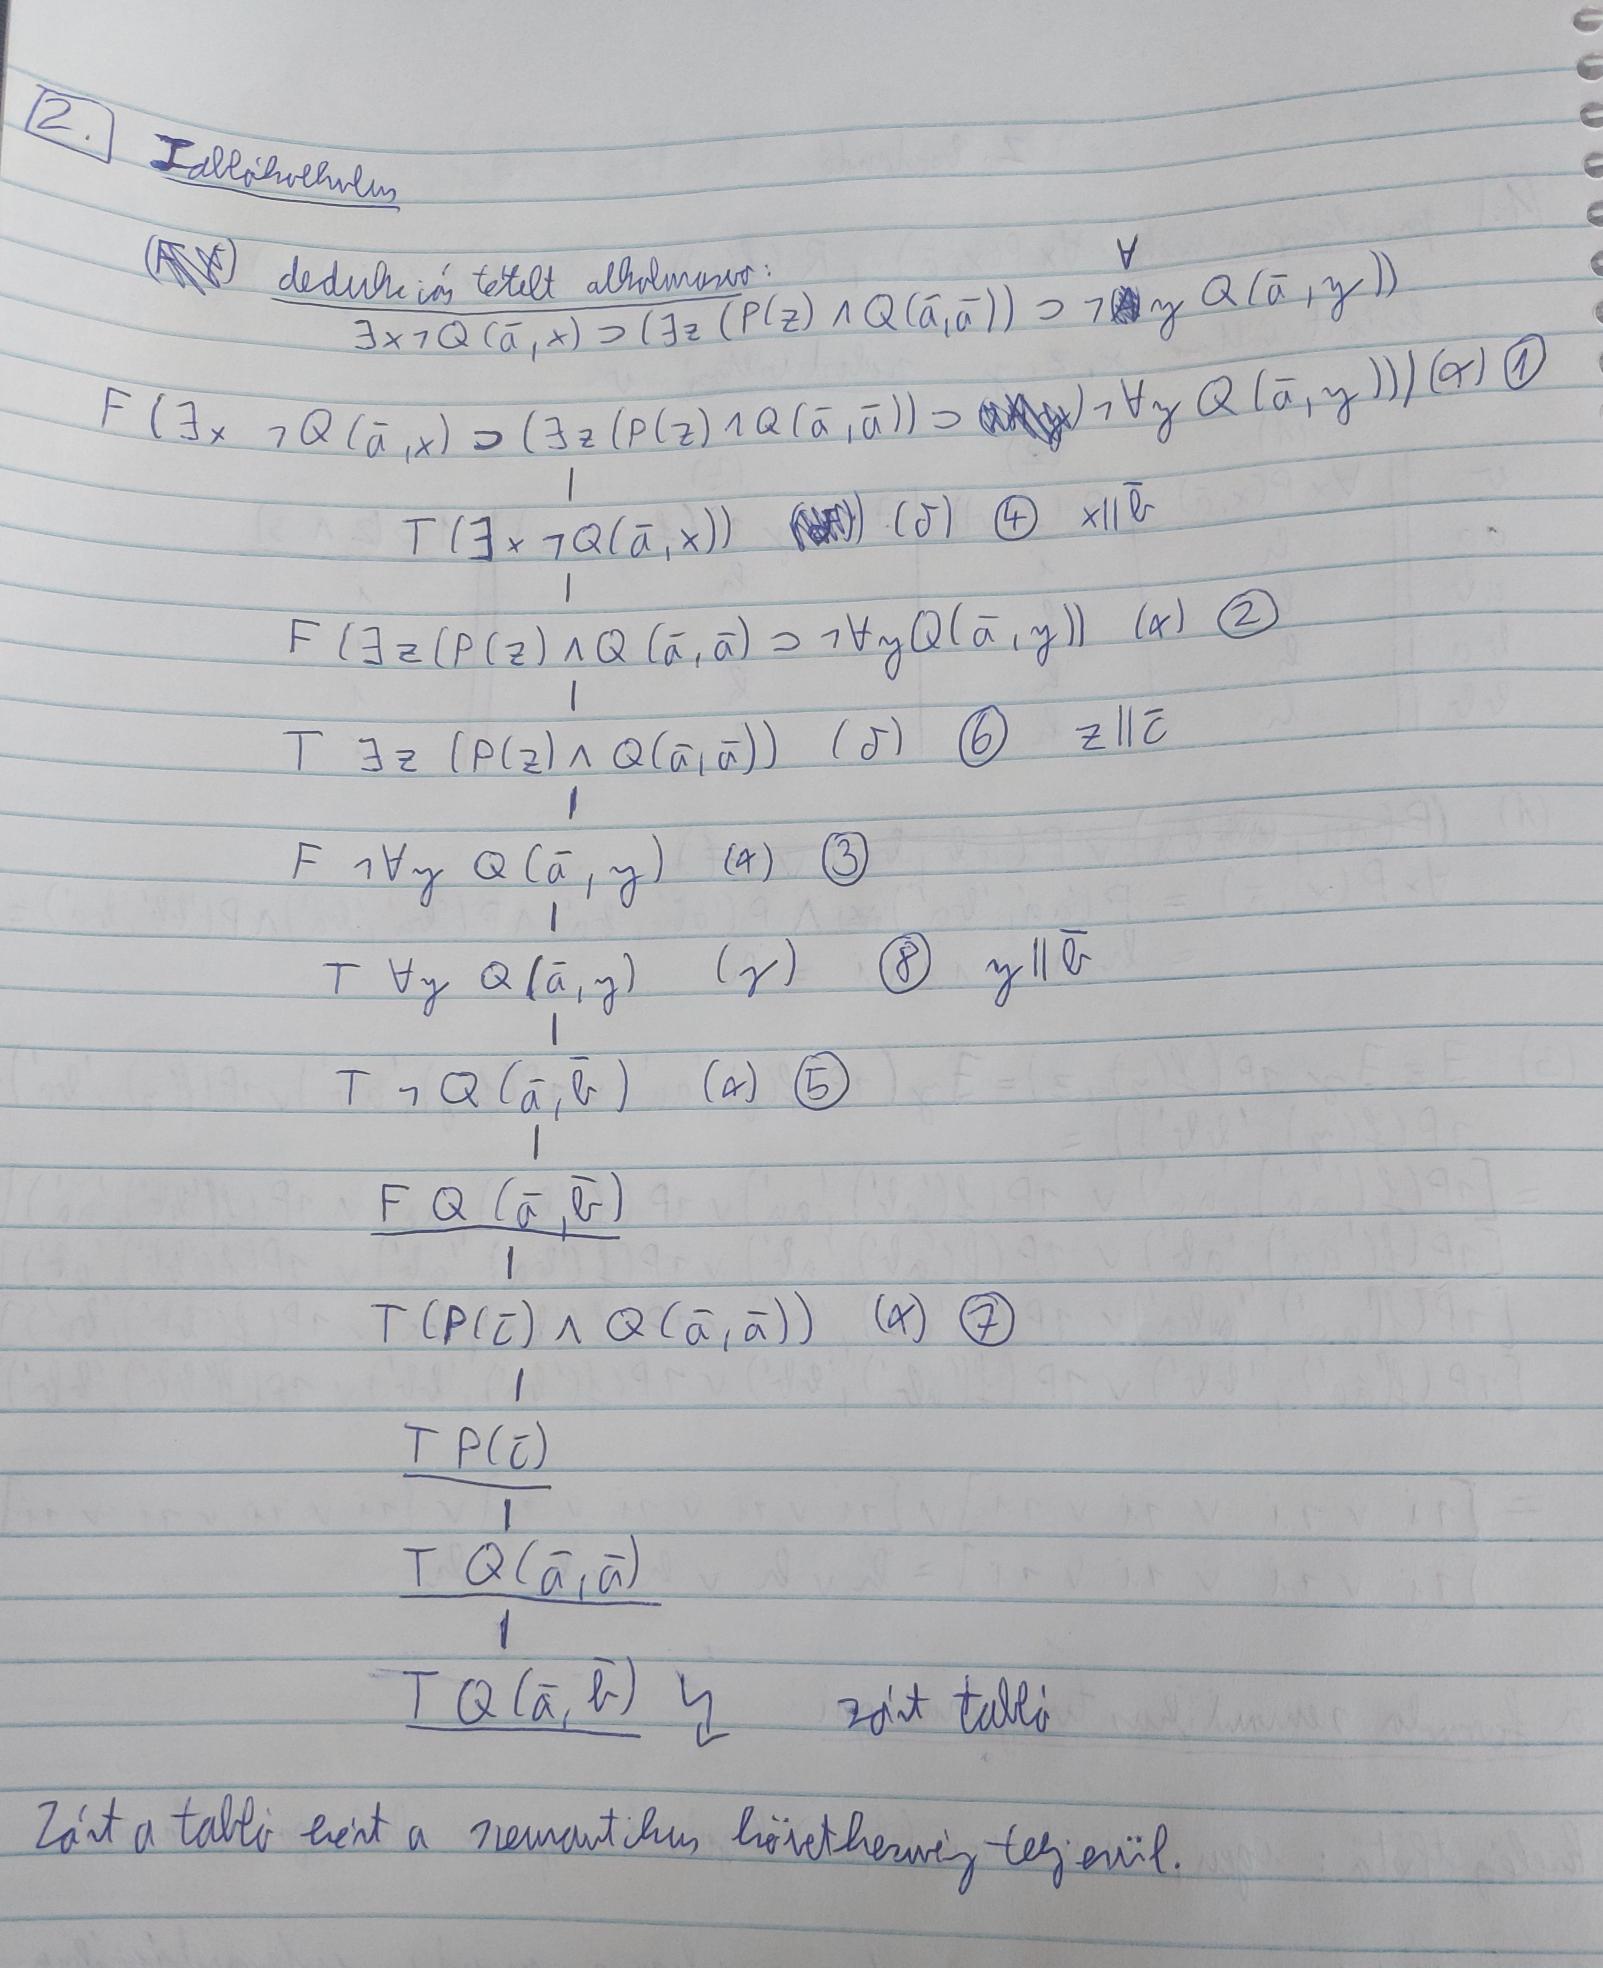 2.
Tablókalkulus
dedukciós tételt alkalmazva:
∃x¬Q(ā,x)⊃(∃z(P(z)∧Q(ā,ā))⊃¬∀y Q(ā,y))
F(∃x ¬Q(ā,x)⊃(∃z(P(z)∧Q(ā,ā))⊃¬∀y Q(ā,y))) (α) ①
T(∃x¬Q(ā,x)) (δ) ④ x||b̄
F(∃z(P(z)∧Q(ā,ā)⊃¬∀yQ(ā,y)) (α) ②
T ∃z (P(z)∧Q(ā,ā)) (δ) ⑥ z||c̄
F ¬∀y Q(ā,y) (α) ③
T ∀y Q(ā,y) (γ) ⑧ y||b̄
T ¬Q(ā,b̄) (α) ⑤
F Q(ā,b̄)
T(P(c̄)∧Q(ā,ā)) (α) ⑦
T P(c̄)
T Q(ā,ā)
T Q(ā,b̄) ↯ zárt tabló
Zárt a tabló ezért a szemantikus következmény teljesül.